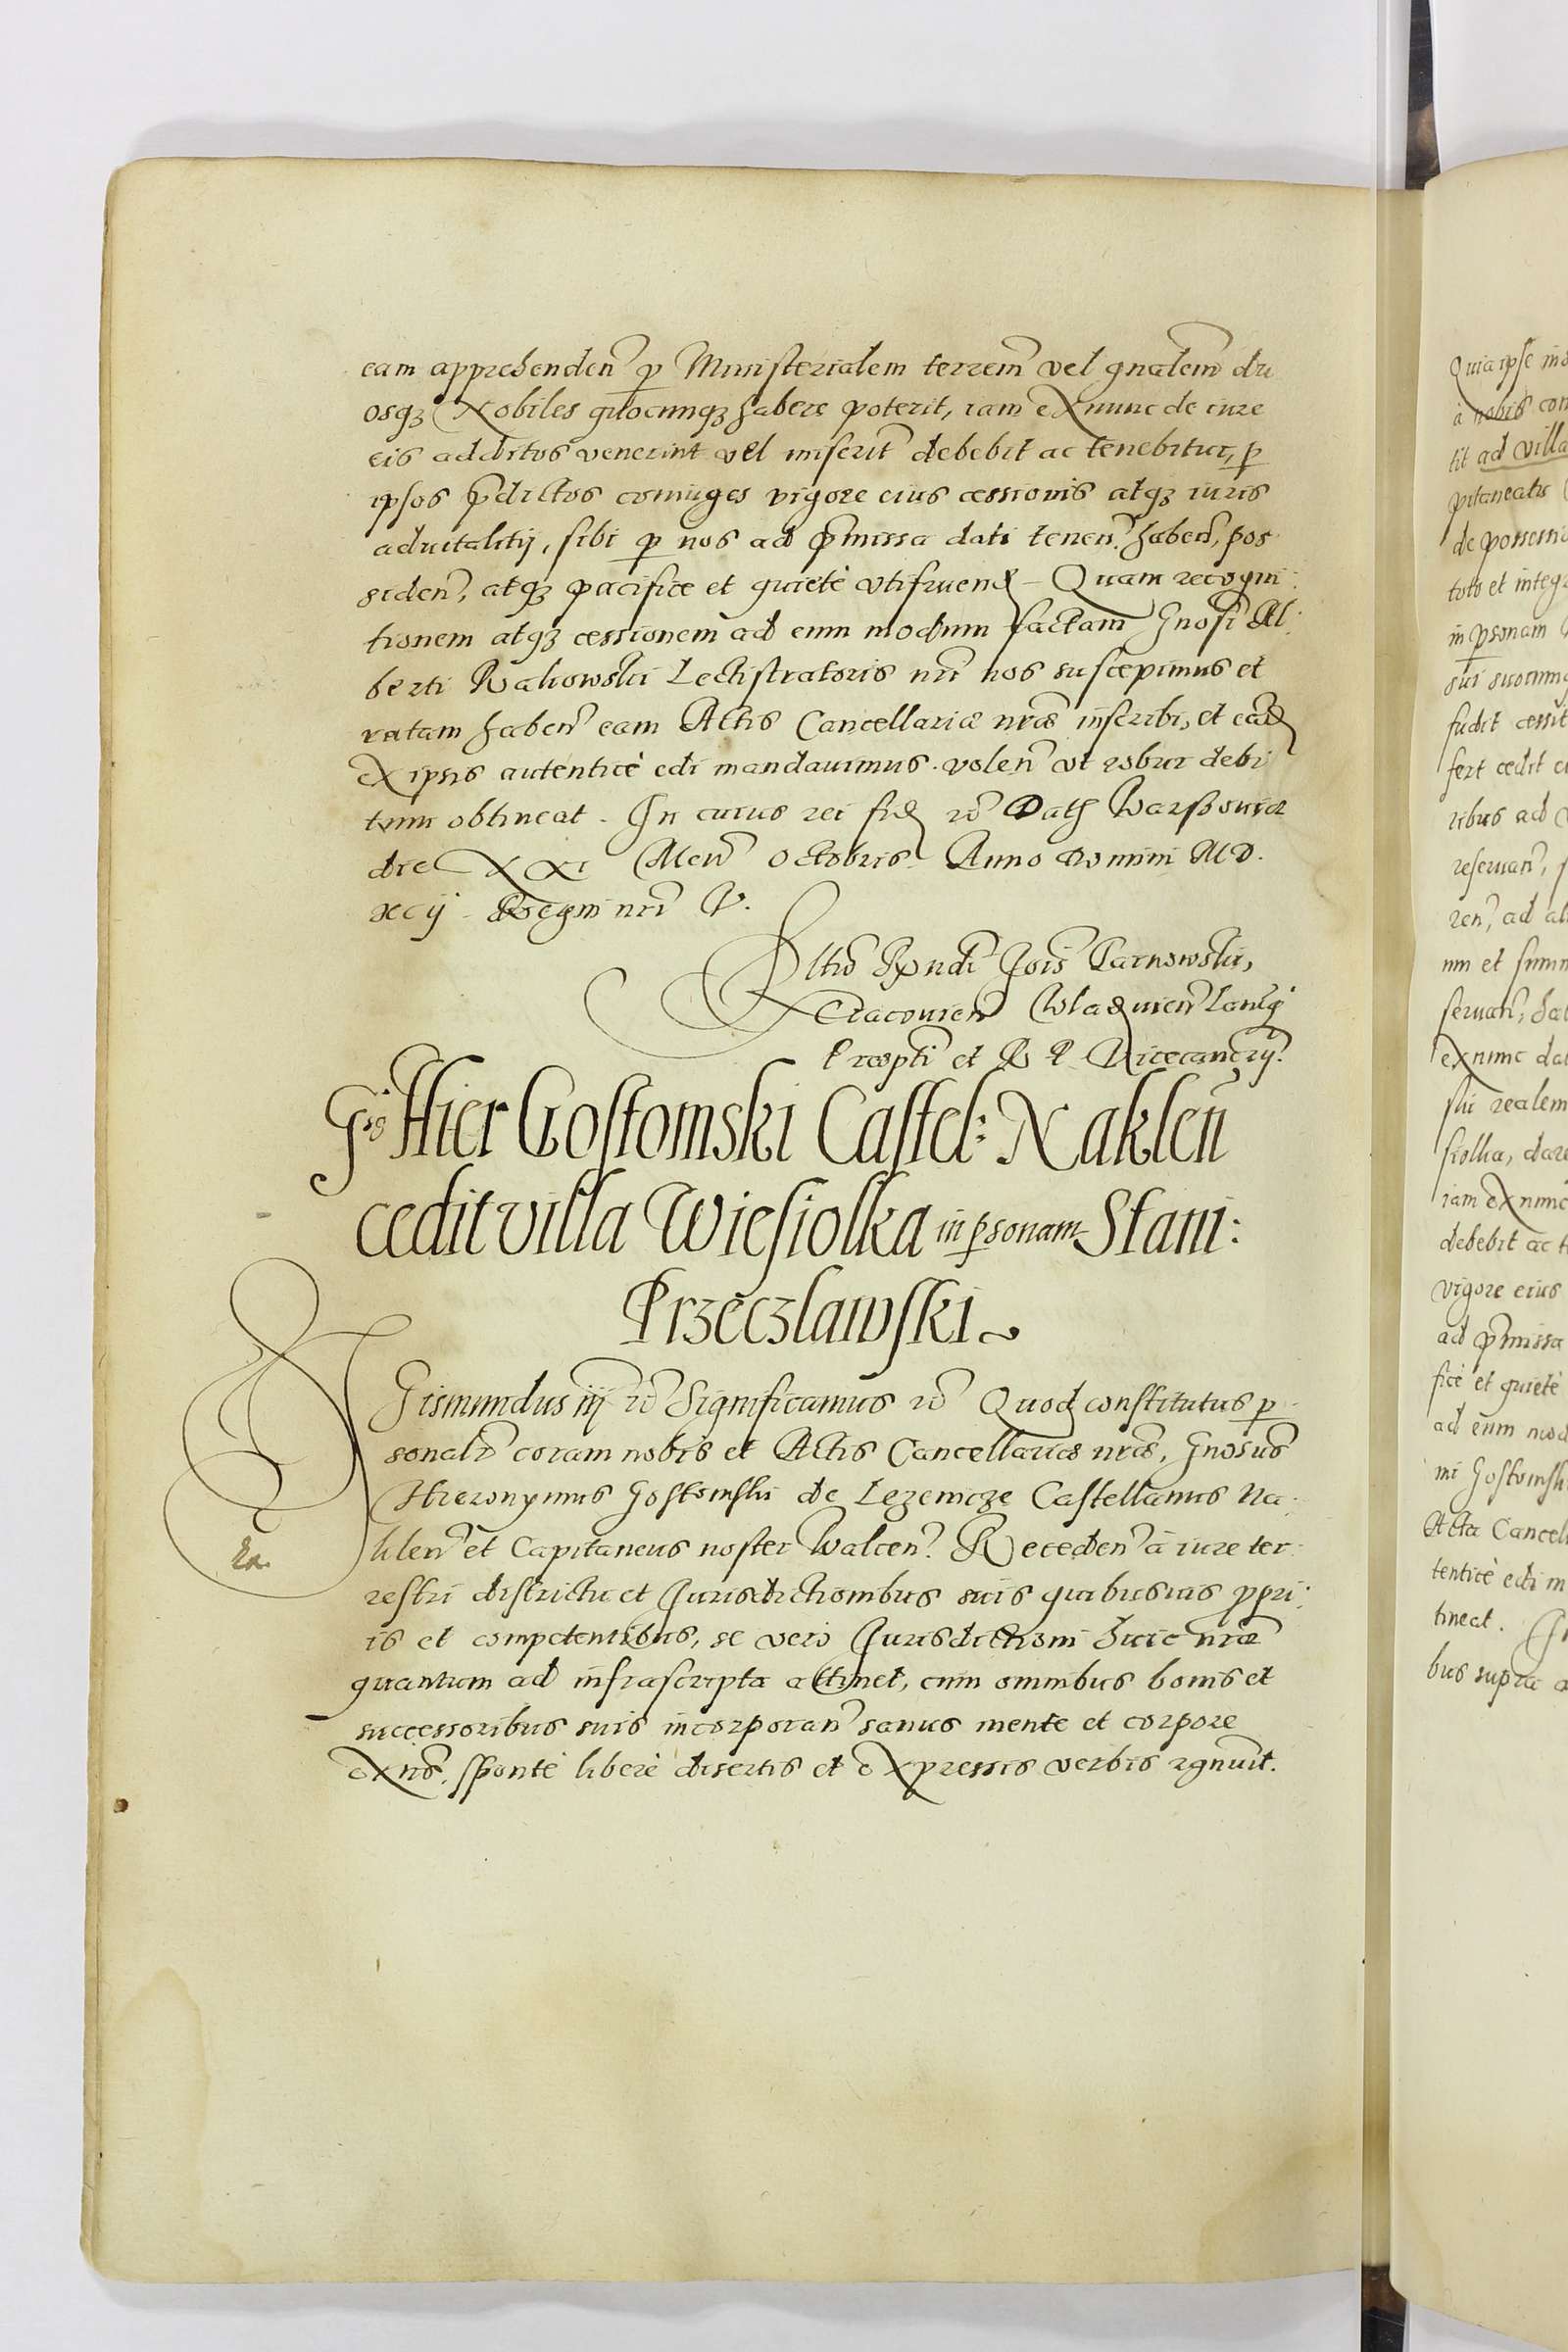 eam apprehenden̄ p̱ Ministerialem terrem̄ vel gn̄alem du
osq₃ Nobiles quocunq₃ habere poterit, iam ex nunc de iure
eis additos venerint vel miserit debebit ac tenebitur, p̱
ipsos p̄dictos coniuges vigore eius cessionis atq₃ iuris
aduitalitij, sibi p̱ nos ad p̄missa dati tenen̄. haben̄, pos
siden̄, atq₃ pacifice et quietè vtifruen̄ – Quam recogni:
tionem atq₃ cessionem ad eum modum factam Gn̄osi Al:
berti Rakowski Lectistratoris nr̄i nos suscepimus et
ratam haben̄ eam Actis Cancellariæ nr̄æ inscribi, et ead
ex ipsis autenticè edi mandauimus. volen̄ vt robur debi
tum obtineat. In cuius rei fid Dat Warssouiæ
die XXI Men̄ Octobris Anno Domini MD.
xcij. Regni nr̄i V.
Rndi Jois Tarnowski,
Cracouien̄ Wladuien̄
Præpti et R P Vicecancrij.
Gs Hier Gostomski Castel: Naklen̄
cedit villa Wiesiolka in p̱sonam Stani:
Przeczlawski
Sigismundus iij Significamus Quod constitutus p̱
sonalr̄ coram nobis et Actis Cancellariæ nr̄æ, Gn̄osus
Hieronymus Gostomski de Lezenicze Castellanus Na:
klen̄ et Capitaneus noster Walcen̄. Receden̄ à iure ter:
restri districtu et Jurisdictionibus suis quibusuis ppri:
is et competentibus, se verò Jurisdictioni huic nr̄æ
quantum ad infrascripta attinet, cum omnibus bonis et
successoribus suis incorporan̄ sanus mente et corpore
exn̄s, spontè liberè disertis et expressis verbis rgnuit.
Quia ipse
à nobis con
tit ad villa
pitaneatu
de possessio
toto et integr
in p̱sonam
sui suorumq
fudit cessit
fert cedit
ribus ad
reseruan̄,
ren̄, ad al
um et summ
seruan̄, ha
ex nunc da
ski realem
siolka, dare
iam ex nunc
debebit ac t
vigore eius
ad p̄missa
ficè et quietè
ad eum mod
mi Gostomsk
Acta Cancel
tenticè edi m
tineat. In
bus supra